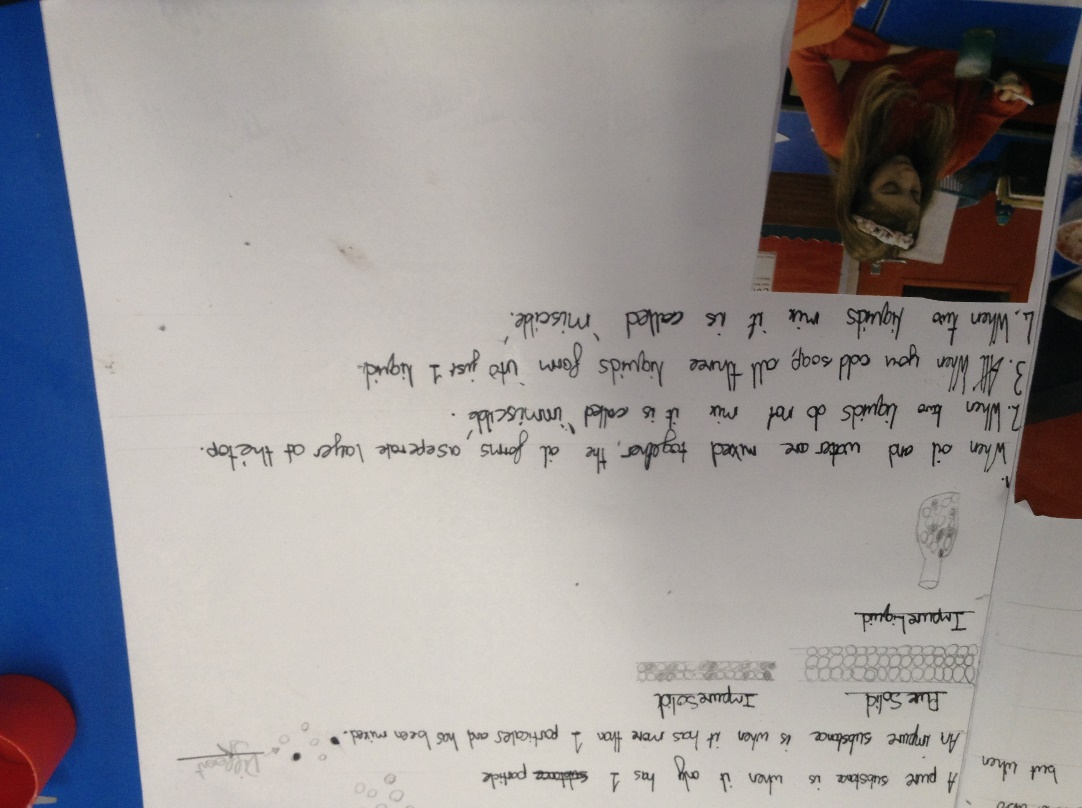 A pure substance is when it only has 1 substance particle
An impure substance is when it has more than 1 particales and has been mixed.
Different
Pure Solid
Impure Solid
Impure Liquid
1.
When oil and water are mixed together, the oil forms a seperate layer at the top.
2. When two liquids do not mix it is called "immiscible".
3. When you add soap, all three liquids form into just 1 liquid.
4. When two liquids mix it is called "miscible".
but when